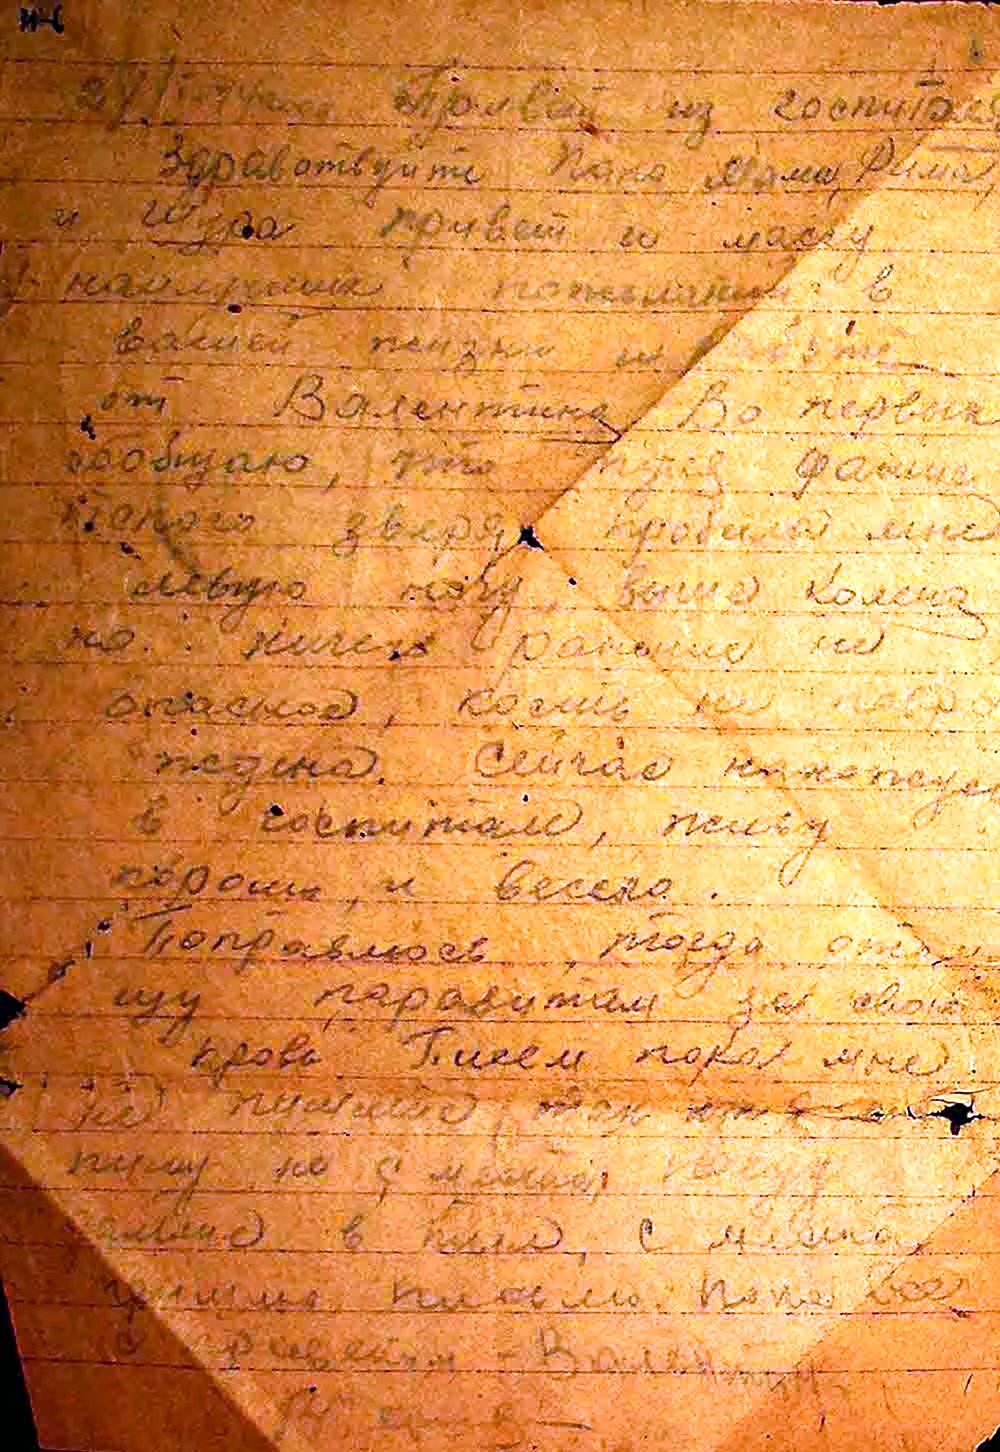 Привет из госпиталя
Здравствуйте Папа, Мама, Рима,
и Шура привет и массу
наилучших пожеланий в
вашей жизни и
от Валентина Во первых
сообщаю, что пуля фашис
зверя, пробила мне
левую ногу, выше колена
но ничего рание не
опасное, кость не повре
ждена. Сейчас нахожусь
в госпитале, живу
хорошо, и весело.
Поправлюсь, тогда отом
щу паразитам за свою
кровь Писем пока мне
не пишите, так как
пишу не с места, поеду
в тыл, с места
пришлю письмо. Пока все
с приветом - Валентин